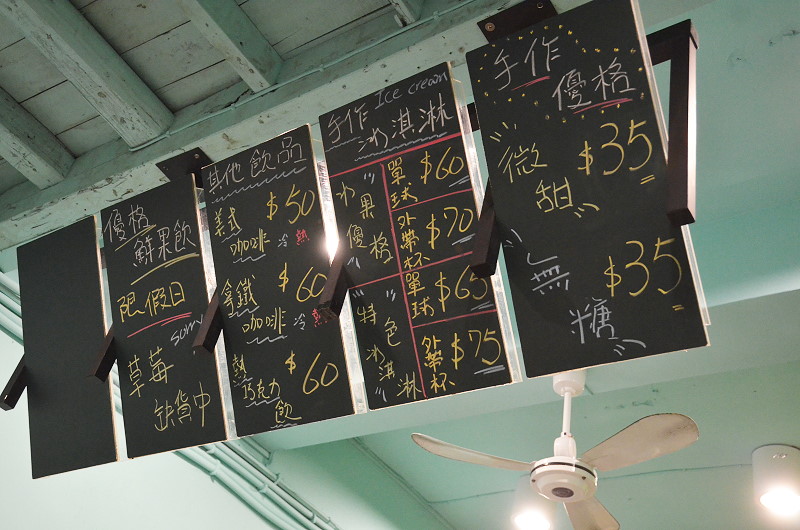 優格
鮮果飲
限假日
草莓
缺貨中
其他飲品
美式 $50
咖啡 冷 熱
拿鐵 $60
咖啡 冷 熱
熱 $60
巧克力
飲
手作 Ice cream
冰淇淋
水果優格
單球 $60
外帶杯 $70
特色冰淇淋
單球 $65
外帶杯 $75
手作
優格
微甜 $35
無糖 $35